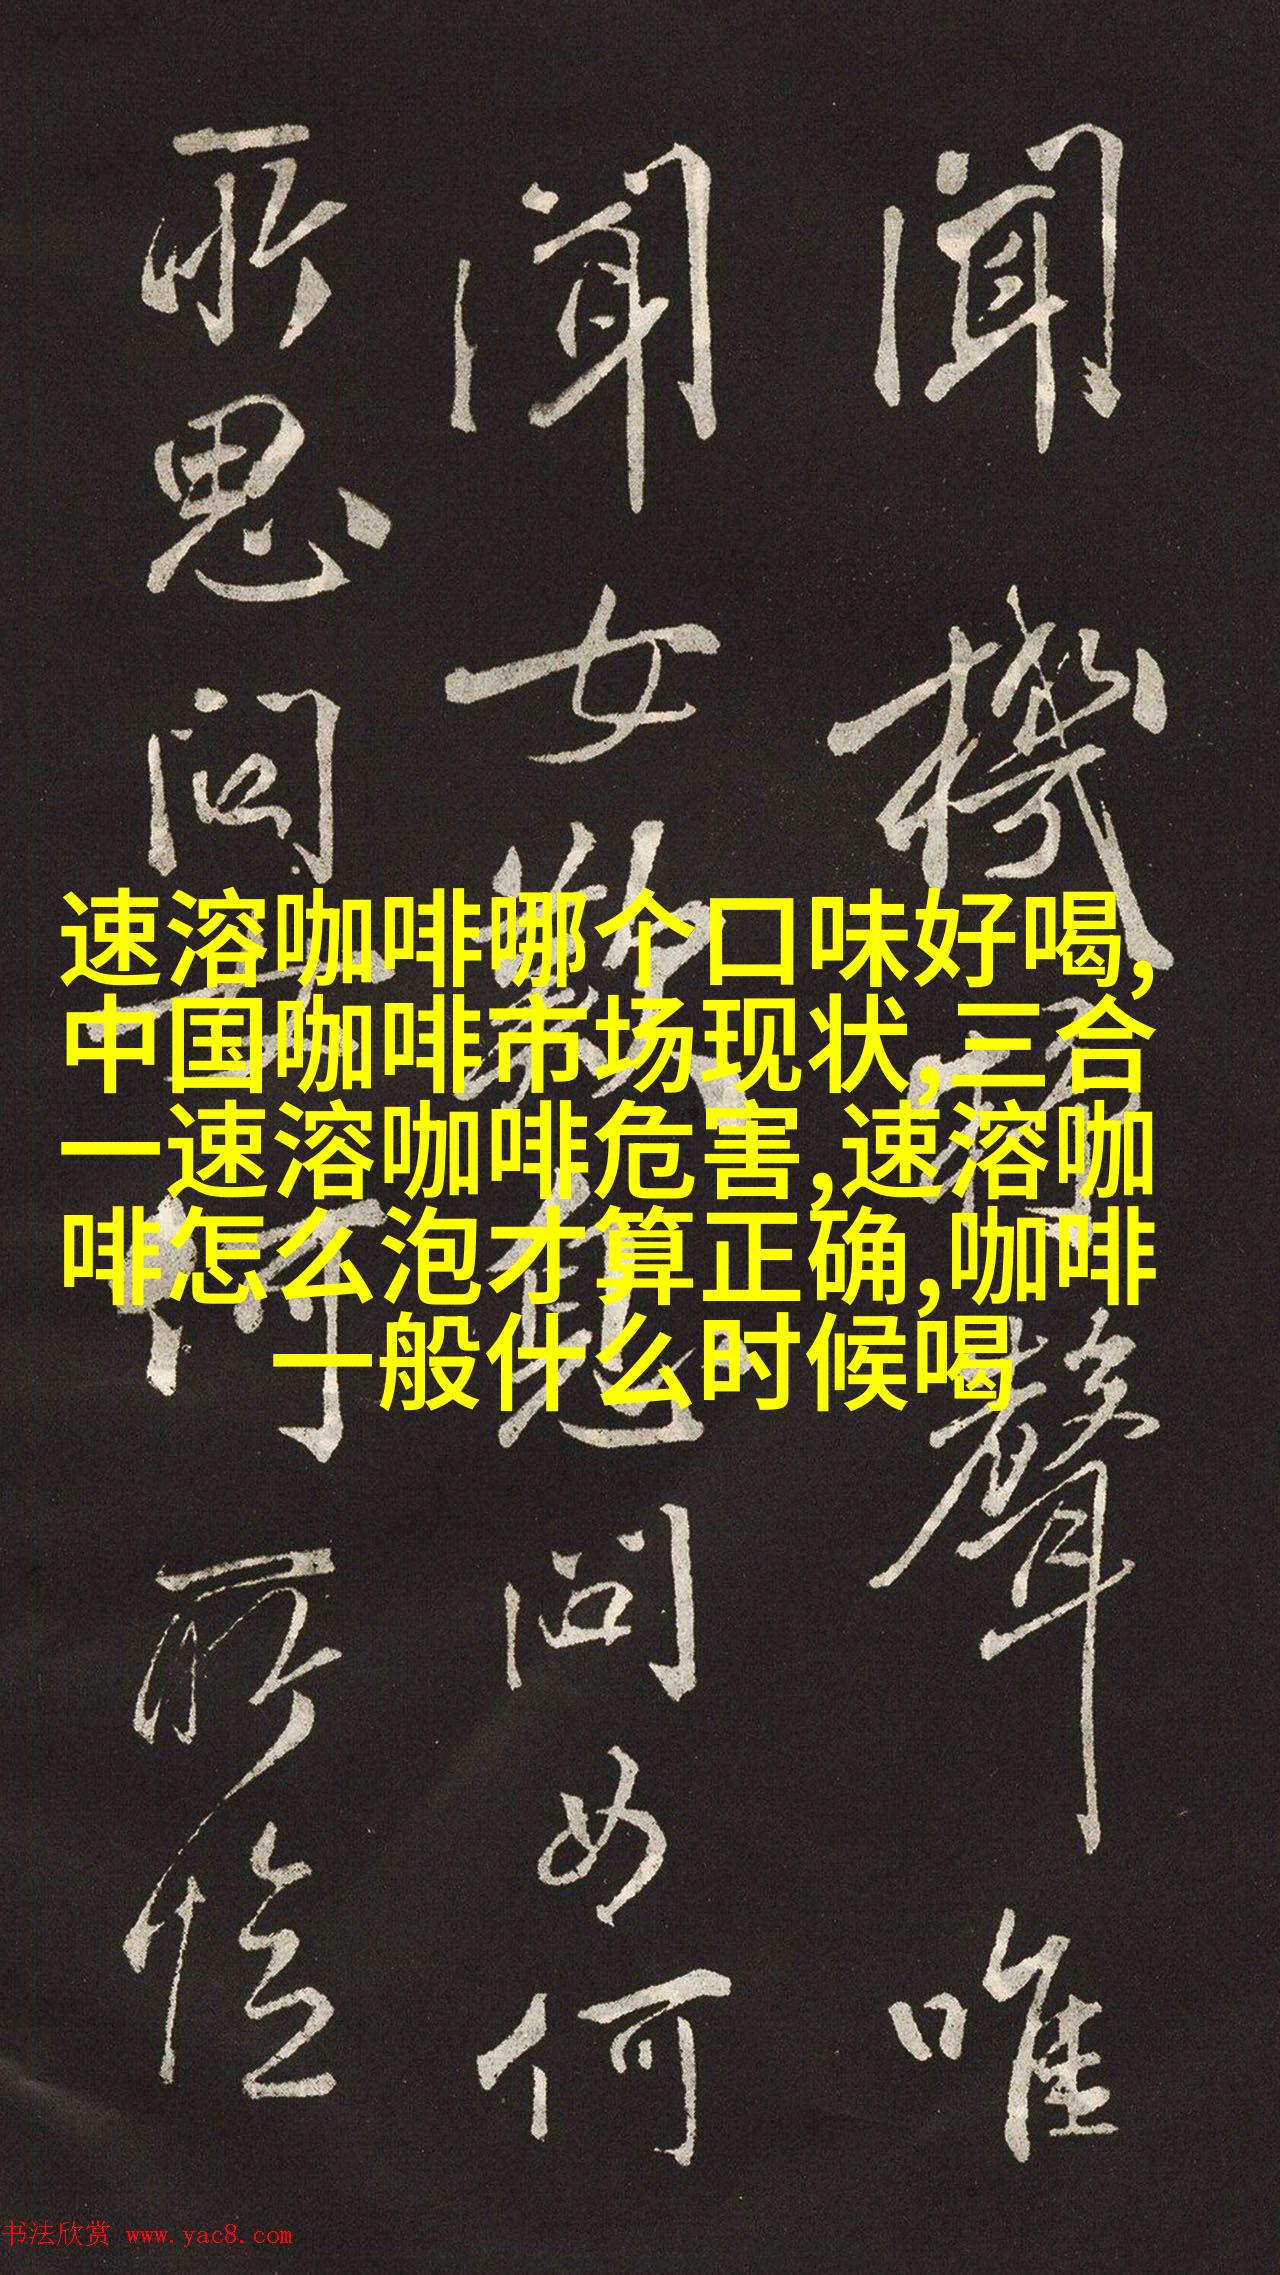 聞機聲唯
聞女歎息問女何
所思問女何所憶
速溶咖啡哪个口味好喝,
中国咖啡市场现状,三合
一速溶咖啡危害,速溶咖
啡怎么泡才算正确,咖啡
一般什么时候喝
书法欣赏 www.yac8.com